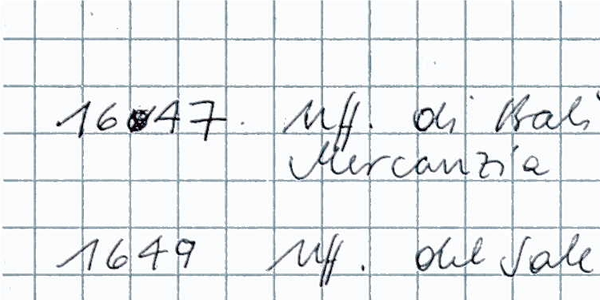 1647. Uff. di Balì
Mercanzia
1649 Uff. del Sale